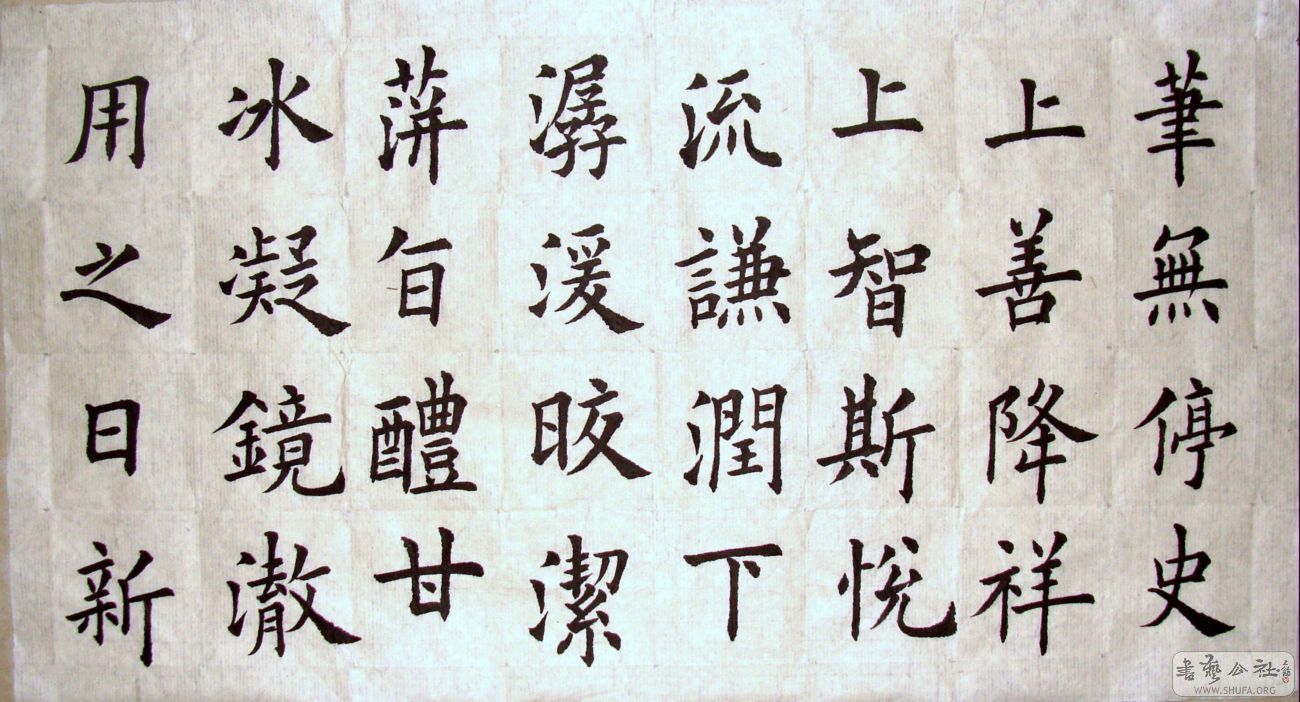 筆無停史
上善降祥
上智斯悅
流謙潤下
潺湲晈潔
蓱旨醴甘
冰凝鏡澈
用之日新
書藝公社
WWW.SHUFA.ORG